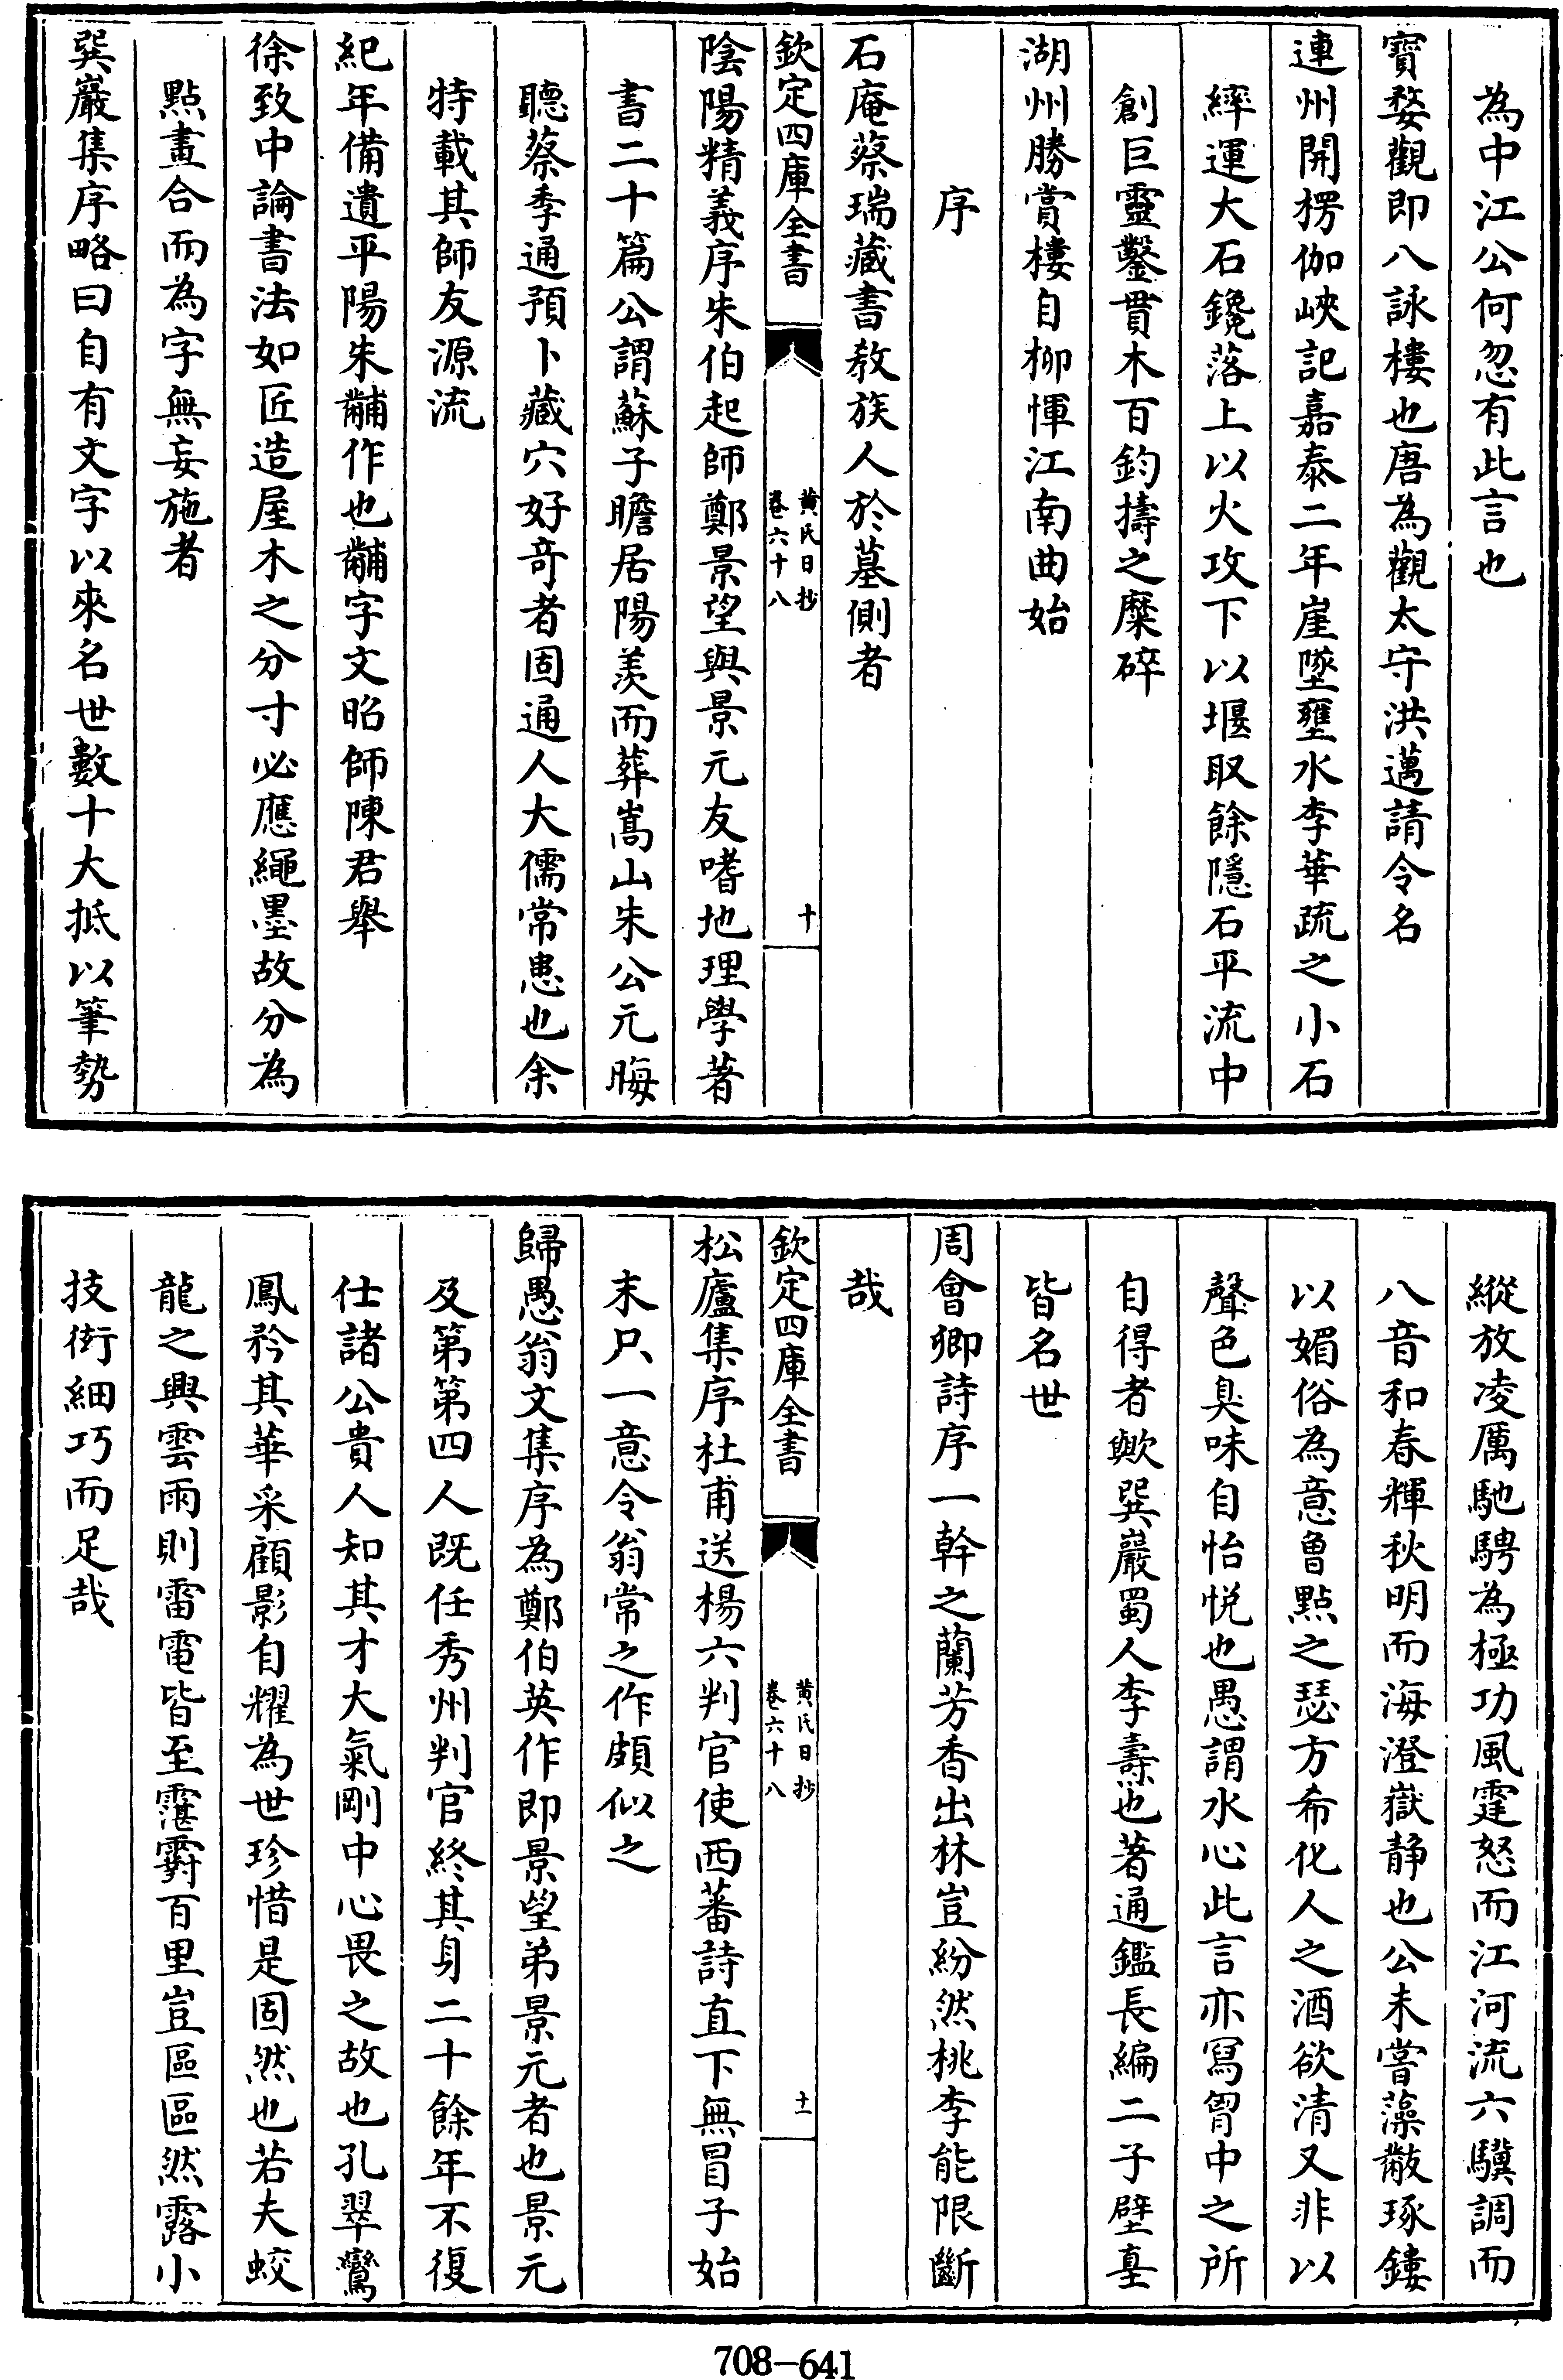 為中江公何忽有此言也
寶婺觀即八詠樓也唐為觀太守洪邁請令名
連州開楞伽峽記嘉泰二年崖墜壅水李華疏之小石
繂運大石鑱落上以火攻下以堰取餘隱石平流中
創巨靈鑿貫木百鈞擣之糜碎
湖州勝賞樓自柳惲江南曲始
序
石庵蔡瑞藏書教族人於墓側者
欽定四庫全書
黄氏日抄
卷六十八
十
陰陽精義序朱伯起師鄭景望與景元友嗜地理學著
書二十篇公謂蘇子瞻居陽羨而葬嵩山朱公元晦
聽蔡季通預卜藏穴好奇者固通人大儒常患也余
特載其師友源流
紀年備遺平陽朱黼作也黼字文昭師陳君舉
徐致中論書法如匠造屋木之分寸必應繩墨故分為
點畫合而為字無妄施者
巽巖集序略曰自有文字以來名世數十大抵以筆勢
縱放凌厲馳騁為極功風霆怒而江河流六驥調而
八音和春輝秋明而海澄嶽静也公未嘗藻黻琢鏤
以媚俗為意曾點之瑟方希化人之酒欲清又非以
聲色臭味自怡悦也愚謂水心此言亦冩胷中之所
自得者歟巽巖蜀人李燾也著通鑑長編二子壁䡖
皆名世
周會卿詩序一幹之蘭芳香出林豈紛然桃李能限斷
哉
欽定四庫全書
黄氏日抄
卷六十八
十一
松廬集序杜甫送楊六判官使西蕃詩直下無冒子始
末只一意令翁常之作頗似之
歸愚翁文集序為鄭伯英作即景望弟景元者也景元
及第第四人既任秀州判官終其身二十餘年不復
仕諸公貴人知其才大氣剛中心畏之故也孔翠鸞
鳳矜其華采顧影自耀為世珍惜是固然也若夫蛟
龍之興雲雨則雷電皆至霮䨴百里豈區區然露小
技衒細巧而足哉
708-641